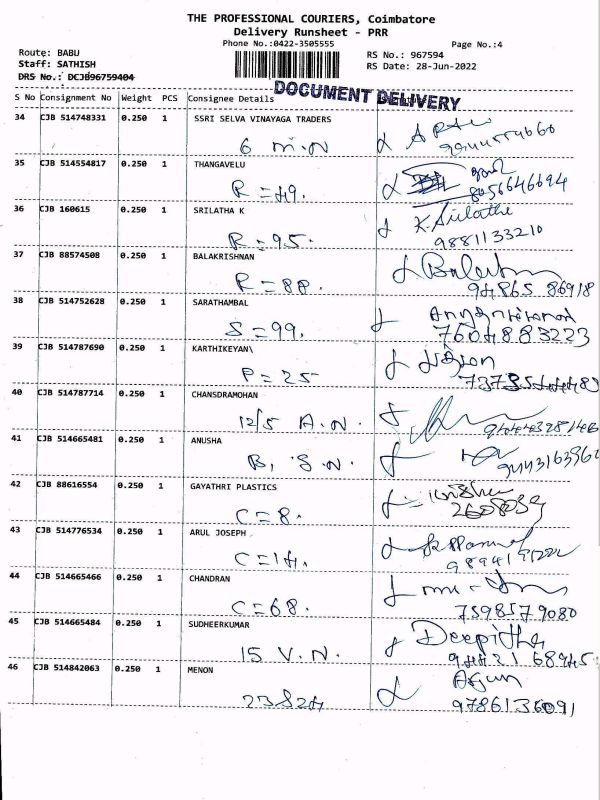 THE PROFESSIONAL COURIERS, Coimbatore
Delivery Runsheet - PRR
Phone No.:0422-3505555
Page No.:4
Route: BABU
Staff: SATHISH
DRS No.: DCJB96759404
RS No.: 967594
RS Date: 28-Jun-2022
DOCUMENT DELIVERY
S No Consignment No Weight PCS Consignee Details
34 CJB 514748331 0.250 1 SSRI SELVA VINAYAGA TRADERS
6 M.N
35 CJB 514554817 0.250 1 THANGAVELU
R = 49.
8056646694
36 CJB 160615 0.250 1 SRILATHA K
K.Srilatha
R = 95.
9881133210
37 CJB 88574508 0.250 1 BALAKRISHNAN
R = 88.
94865 86918
38 CJB 514752628 0.250 1 SARATHAMBAL
S = 99.
7604883223
39 CJB 514787690 0.250 1 KARTHIKEYAN\
P = 25
40 CJB 514787714 0.250 1 CHANSDRAMOHAN
12/5 A.N.
41 CJB 514665481 0.250 1 ANUSHA
B, S.N.
9443163962
42 CJB 88616554 0.250 1 GAYATHRI PLASTICS
C = 8.
43 CJB 514776534 0.250 1 ARUL JOSEPH
C = 14.
44 CJB 514665466 0.250 1 CHANDRAN
C = 68.
7598579080
45 CJB 514665484 0.250 1 SUDHEERKUMAR
Deepitha
15 V.N.
94421 68945
46 CJB 514842063 0.250 1 MENON
Arjun
23824
9786136091